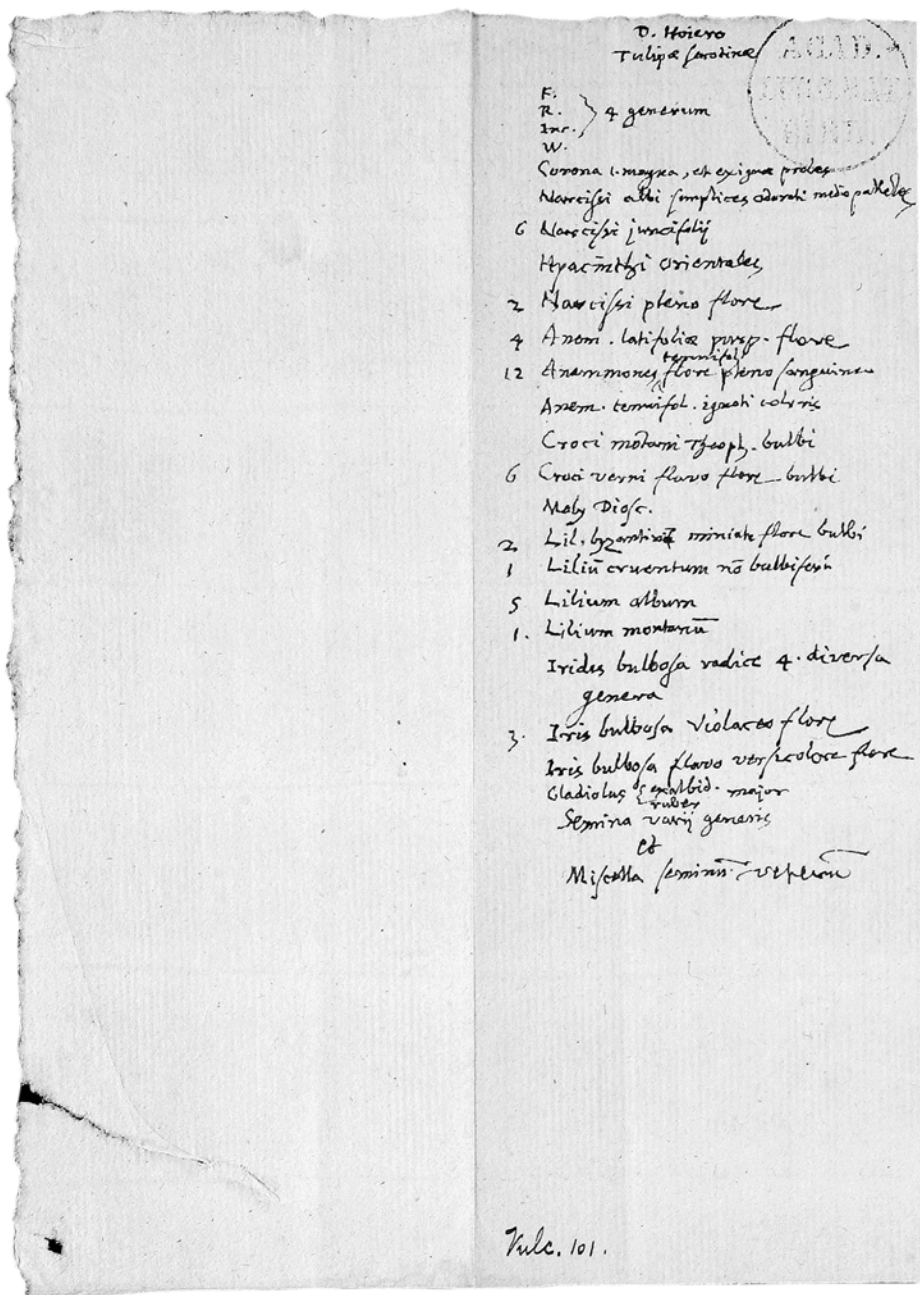 D. Hoiero
Tulipæ serotinæ
ACAD.
F.
R. } 4 generum
Inc.
W.
Corona 1. magna, et exiguæ proles
Narcissi albi simplices odorati medio
6 Narcissi juncifolij
Hyacinthi orientales
2 Narcissi pleno flore
4 Anem. latifoliæ purp. flore
tenuifol.
12 Anemmones flore pleno sanguineo
Anem. tenuifol. ignoti coloris
Croci mōtani Theoph. bulbi
6 Croci verni flavo flore bulbi
Moly Diosc.
2 Lil. byzantinæ miniato flore bulbi
1 Liliū cruentum nō bulbiferū
5 Lilium album
1. Lilium montanū
Irides bulbosa radice 4. diversa
genera
3. Iris bulbosa violaceo flore
Iris bulbosa flavo versicolore flore
Gladiolus { exalbid. major
ruber
Semina varij generis
et
Miscella seminū veterū
Vulc. 101.